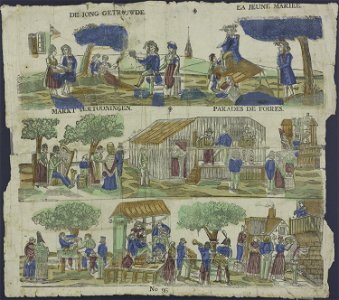 DE JONG GETROUWDE.
LA JEUNE MARIEE.
MARKT VERTOONINGEN.
PARADES DE FOIRES.
No 96